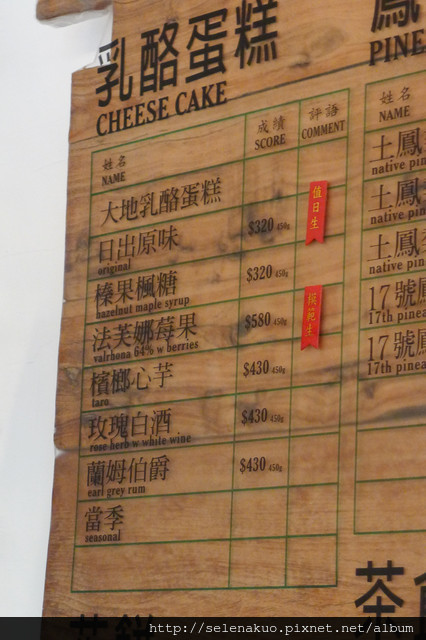 乳酪蛋糕
CHEESE CAKE
姓名 成績 評語
NAME SCORE COMMENT
大地乳酪蛋糕
日出原味 $320 450g 值日生
original
榛果楓糖 $320 450g
hazelnut maple syrup
法芙娜莓果 $580 450g 模範生
valrhona 64% w berries
檳榔心芋 $430 450g
taro
玫瑰白酒 $430 450g
rose herb w white wine
蘭姆伯爵 $430 450g
earl grey rum
當季
seasonal
鳳
PINE
姓名
NAME
土鳳
native pin
土鳳
native pin
土鳳
native pin
17號鳳
17th pinea
17號鳳
17th pinea
茶
http://selenakuo.pixnet.net/album